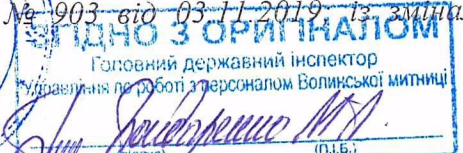 № 903 від 03-11-2019 із зміна
ЗГІДНО З ОРИГІНАЛОМ
Головний державний інспектор
Управління по роботі з персоналом Волинської митниці
(П.І.Б.)